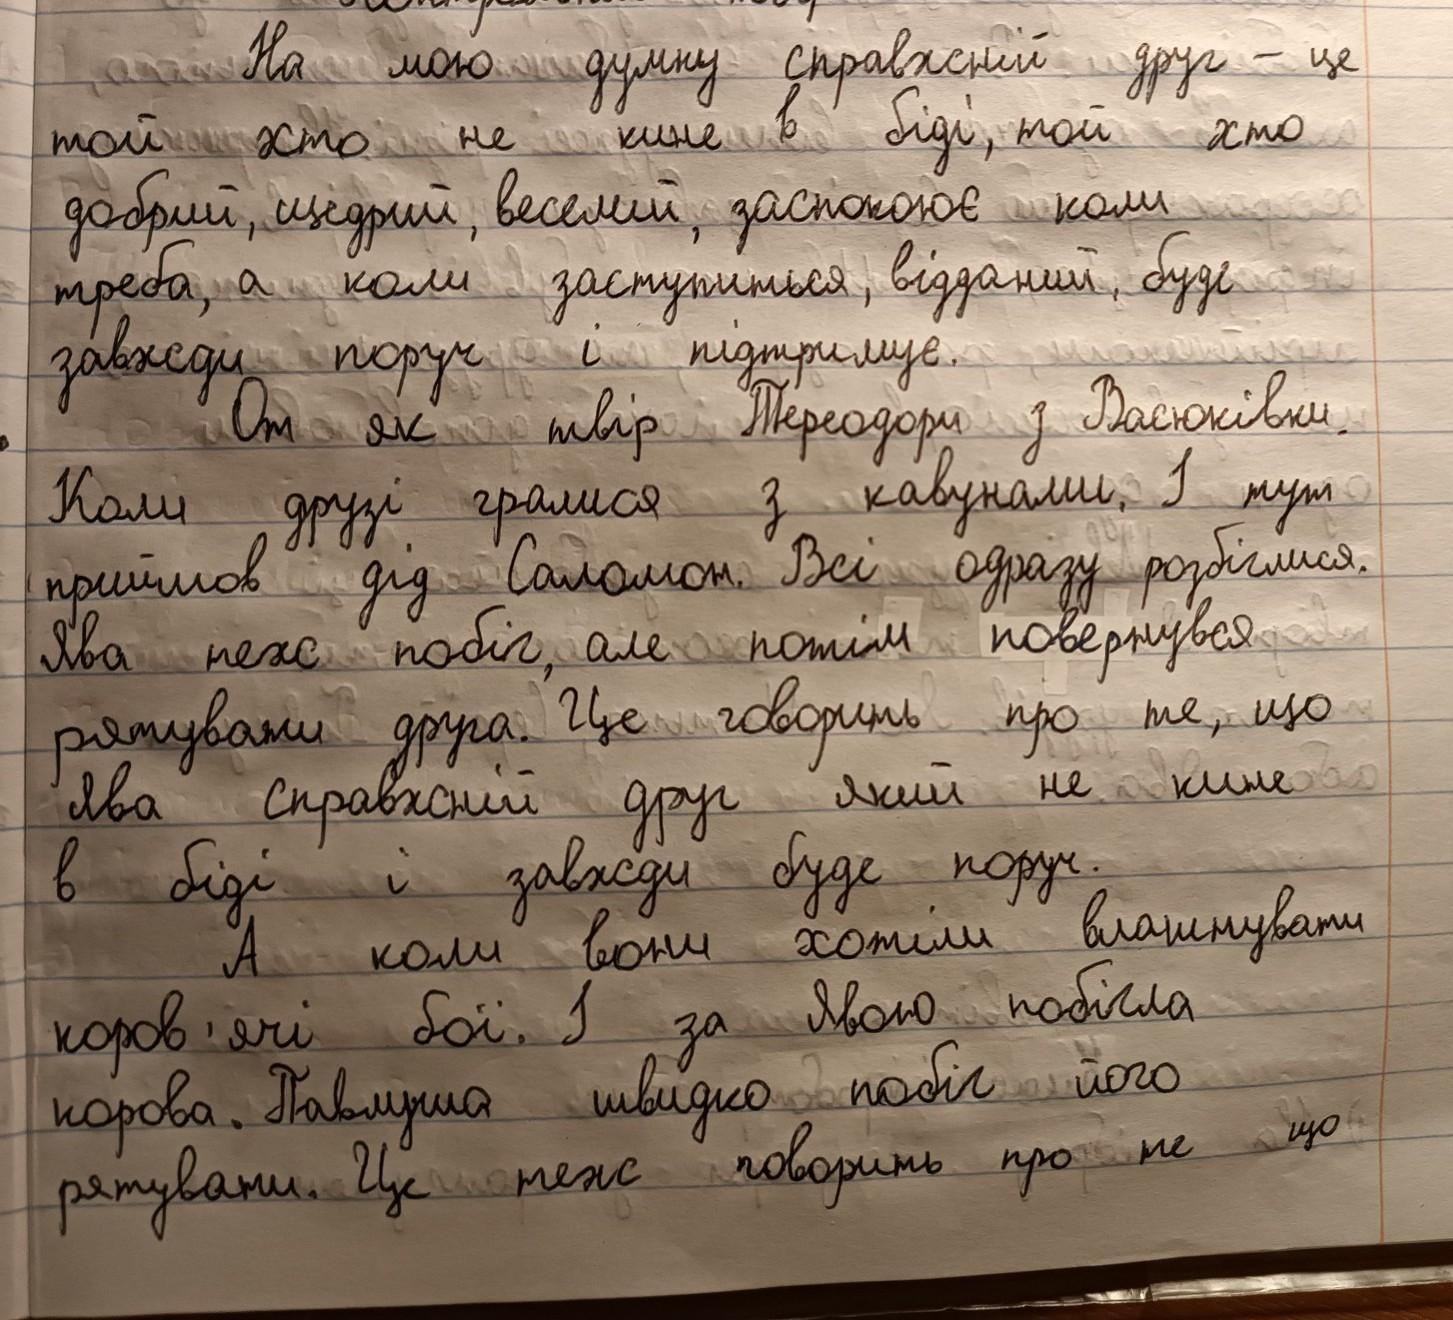 На мою думку справжній друг – це
той хто не кине в біді, той хто
добрий, щедрий, веселий, заспокоює коли
треба, а коли заступиться, відданий, буде
завжди поруч і підтримує.
От як твір Тереодори з Васюківки.
Коли друзі гралися з кавунами. І тут
прийшов дід Саломон. Всі одразу розбіглися.
Ява теж побіг, але потім повернувся
рятувати друга. Це говорить про те, що
Ява справжній друг який не кине
в біді і завжди буде поруч.
А коли вони хотіли влаштувати
коров'ячі бої. І за Явою побігла
корова. Павлуша швидко побіг його
рятувати. Це теж говорить про те що